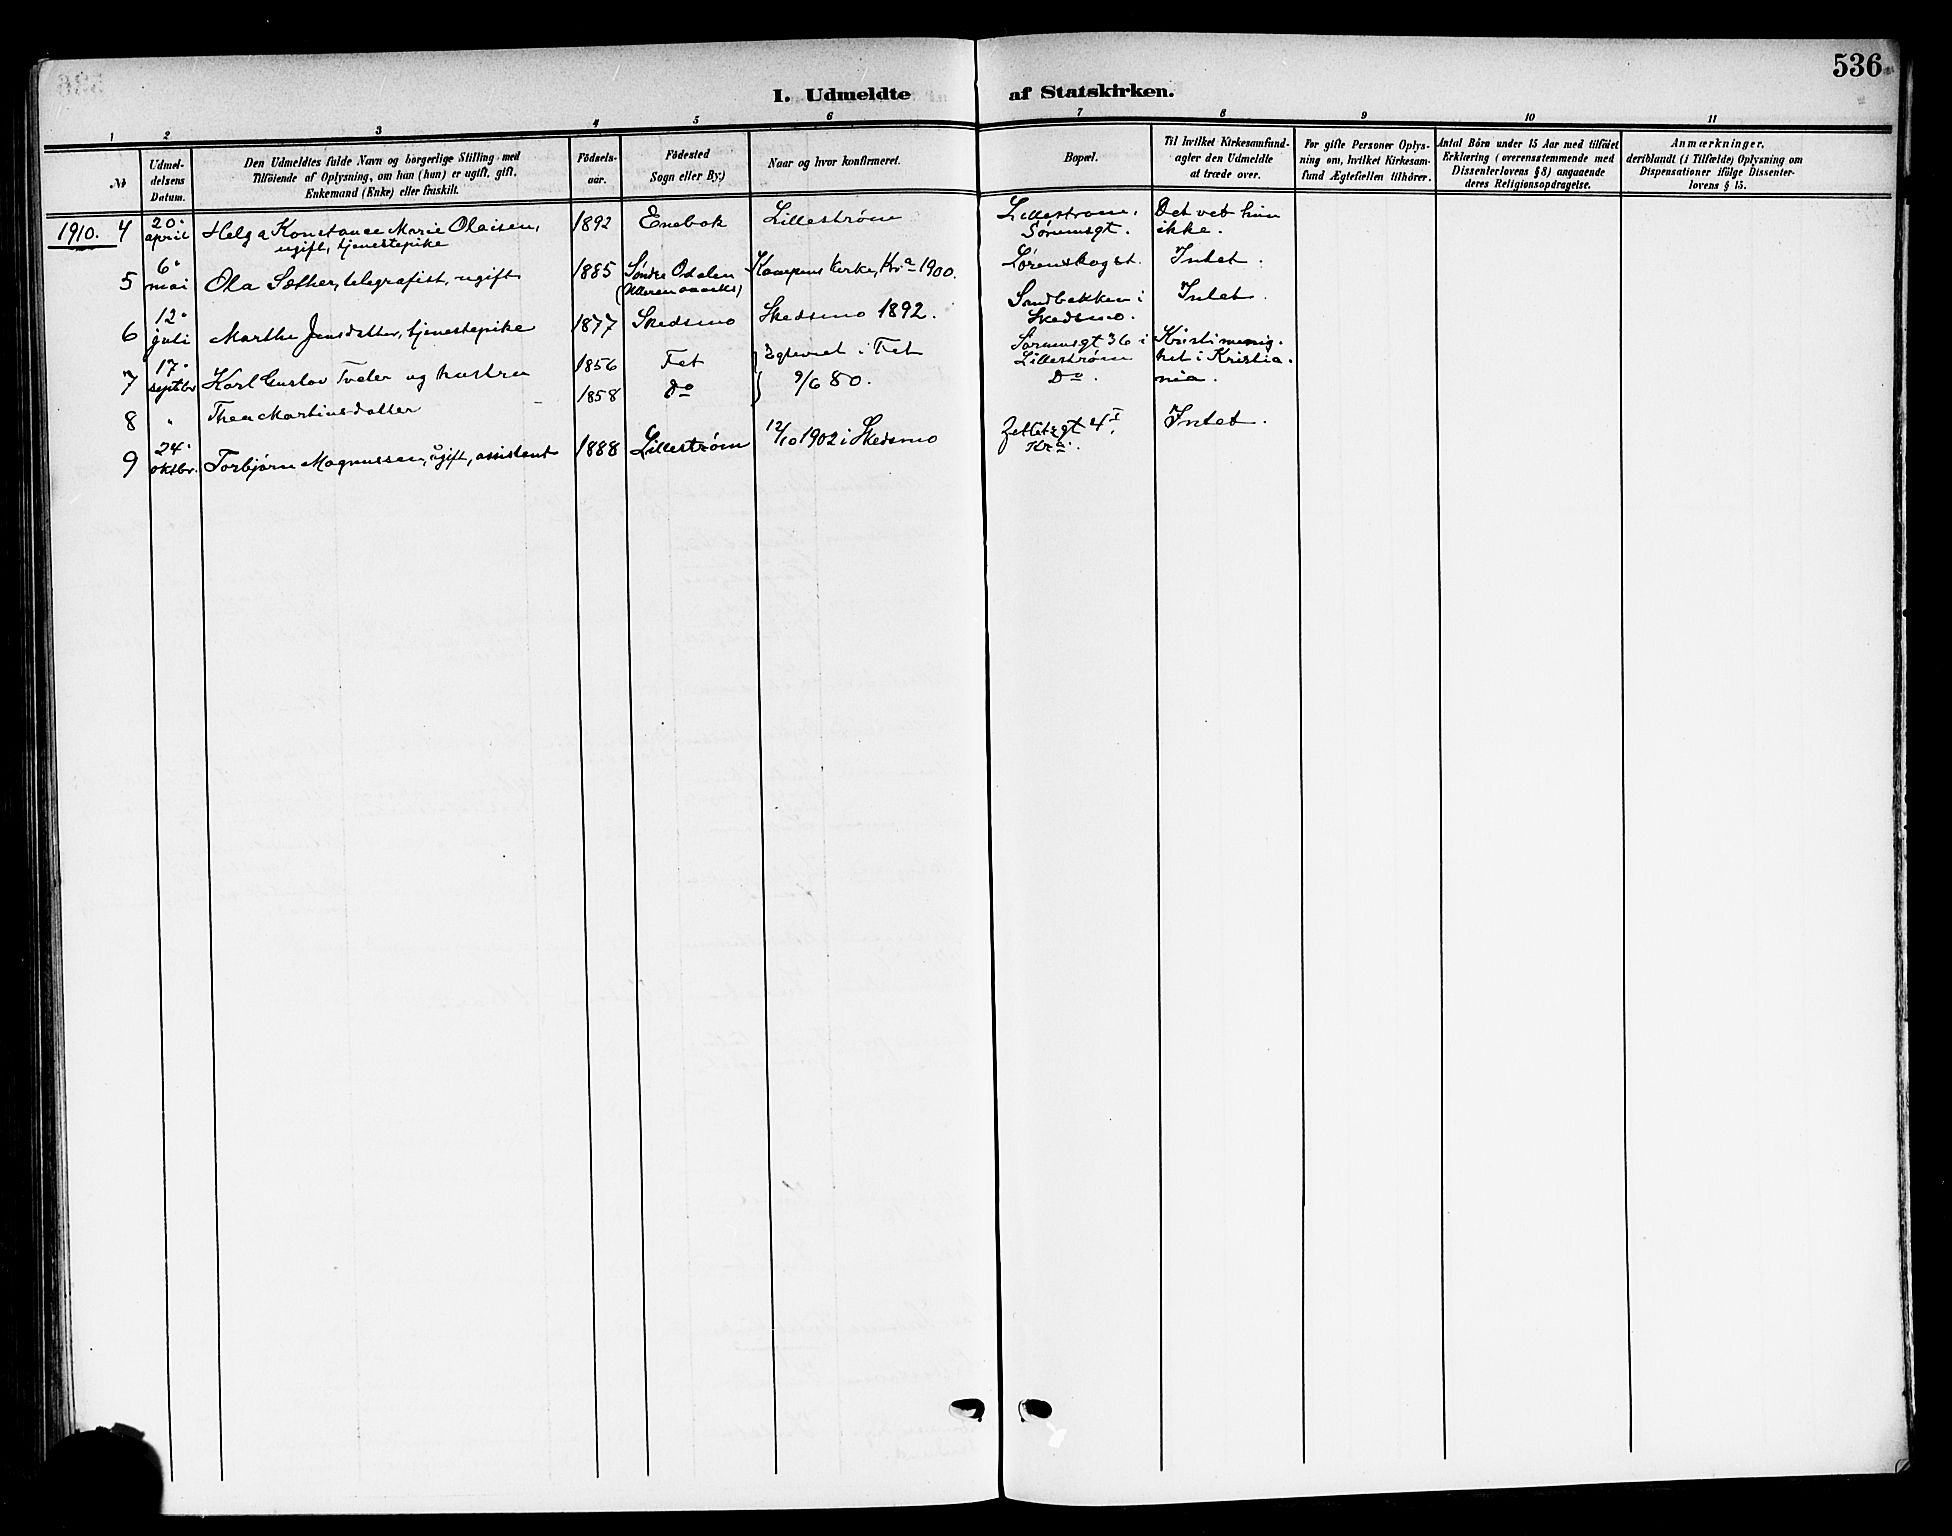 536
I. Udmeldte af Statskirken.
1 2 3 4 5 6 7 8 9 10 11
№
Udmel-
delsens
Datum.
Den Udmeldtes fulde Navn og borgerlige Stilling med
Tilføiende af Oplysning, om han (hun) er ugift, gift,
Enkemand (Enke) eller fraskilt.
Fødsels-
aar.
Fødested
Sogn eller By.)
Naar og hvor konfirmeret.
Bopæl.
Til hvilket Kirkesamfund-
agter den Udmeldte
at træde over.
For gifte Personer Oplys-
ning om, hvilket Kirkesam-
fund Ægtefællen tilhører.
Antal Børn under 15 Aar med tilføiet
Erklæring (overensstemmende med
Dissenterlovens § 8) angaaende
deres Religionsopdragelse.
Anmærkninger.
deriblandt (i Tilfælde) Oplysning om
Dispensationer ifølge Dissenter-
lovens § 15.
1910. 4 20. april Helga Konstanse Marie Olaisen, 1892 Enebak Lillestrøm Lillestrøm, Det vet hun
ugift, tjenestepike Sørumsgt. ikke.
5 6. mai Ola Sæther, telegrafist, ugift 1885 Søndre Odalen Kampens kirke, Kra 1900. Lørenskog st. Intet.
6 12. juli Marthe Jensdatter, tjenestepike 1877 Skedsmo Skedsmo 1892. Sandbakken i Intet.
Skedsmo.
7 17. septbr Karl Gustav Tveter og hustru 1856 Fet Egteviet i Fet Sørumsgt 36 i Kristi menig-
Lillestrøm het i Kristia-
8 " Thea Martinusdatter 1858 Do 9/6 80. Do. nia.
9 24. oktbr. Torbjørn Magnussen, ugift, assistent 1888 Lillestrøm 12/10 1902 i Skedsmo Zetlitzgt 4 I, Intet.
Kra.